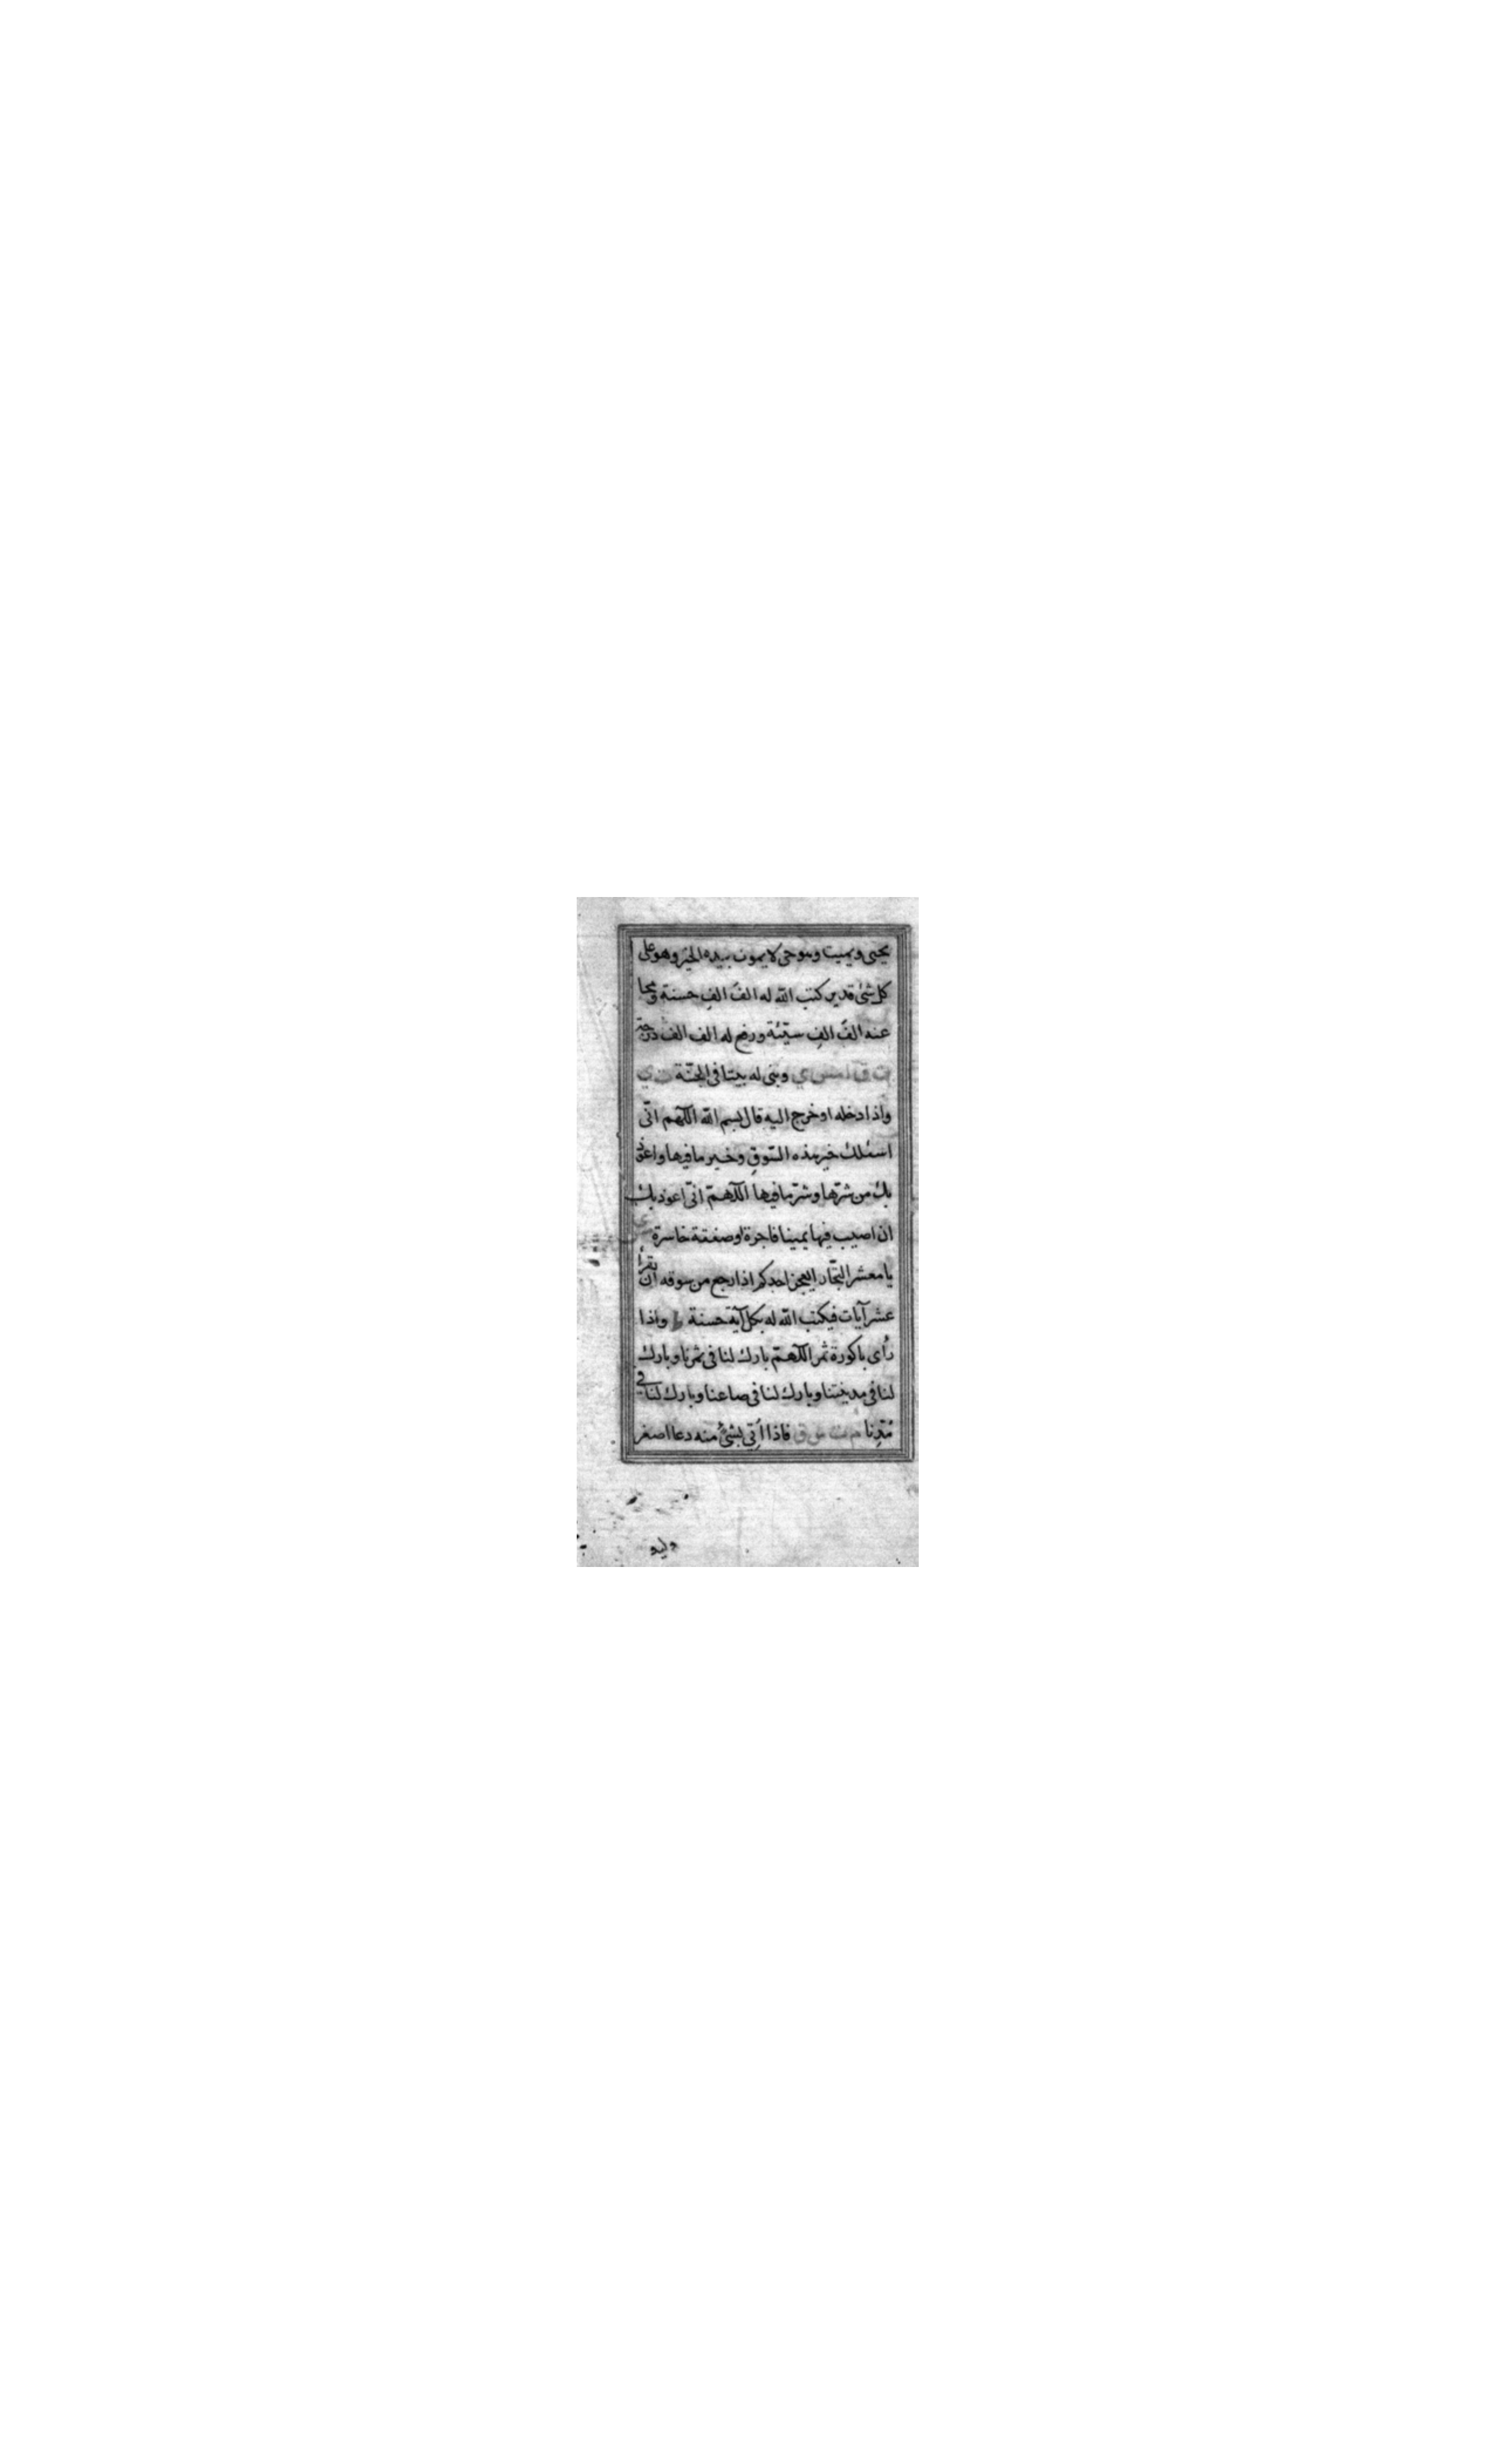 يحيى ويميت وهو حى لا يموت بيده الخير وهو على
كل شئ قدير كتب الله له الفَ الفِ حسنة ومحا
عنه الفَ الفِ سيّئة ورفع له الف الف درجة
ت ق مس ي وبنى له بيتا فى الجنّة ت ي
واذا دخله او خرج اليه قال بسم الله اللّهم انّى
اسئلك خير هذه السّوقِ وخير ما فيها واعوذ
بك من شرّها وشرّ ما فيها اللّهمّ انّى اعوذ بك
ان اصيب فيها يمينا فاجرة او صفقة خاسرة
يا معشر التجّار ايعجز احدكم اذا رجع من سوقه ان يقرأ
عشر آيات فيكتب الله له بكل آية حسنة ط واذا
رأى باكورة ثمر اللّهمّ بارك لنا فى ثمرنا وبارك
لنا فى مدينتنا وبارك لنا فى صاعنا وبارك لنا فى
مُدِّنا م ت س ق فاذا اُتِي بشئ منه دعا اصغر
وليد